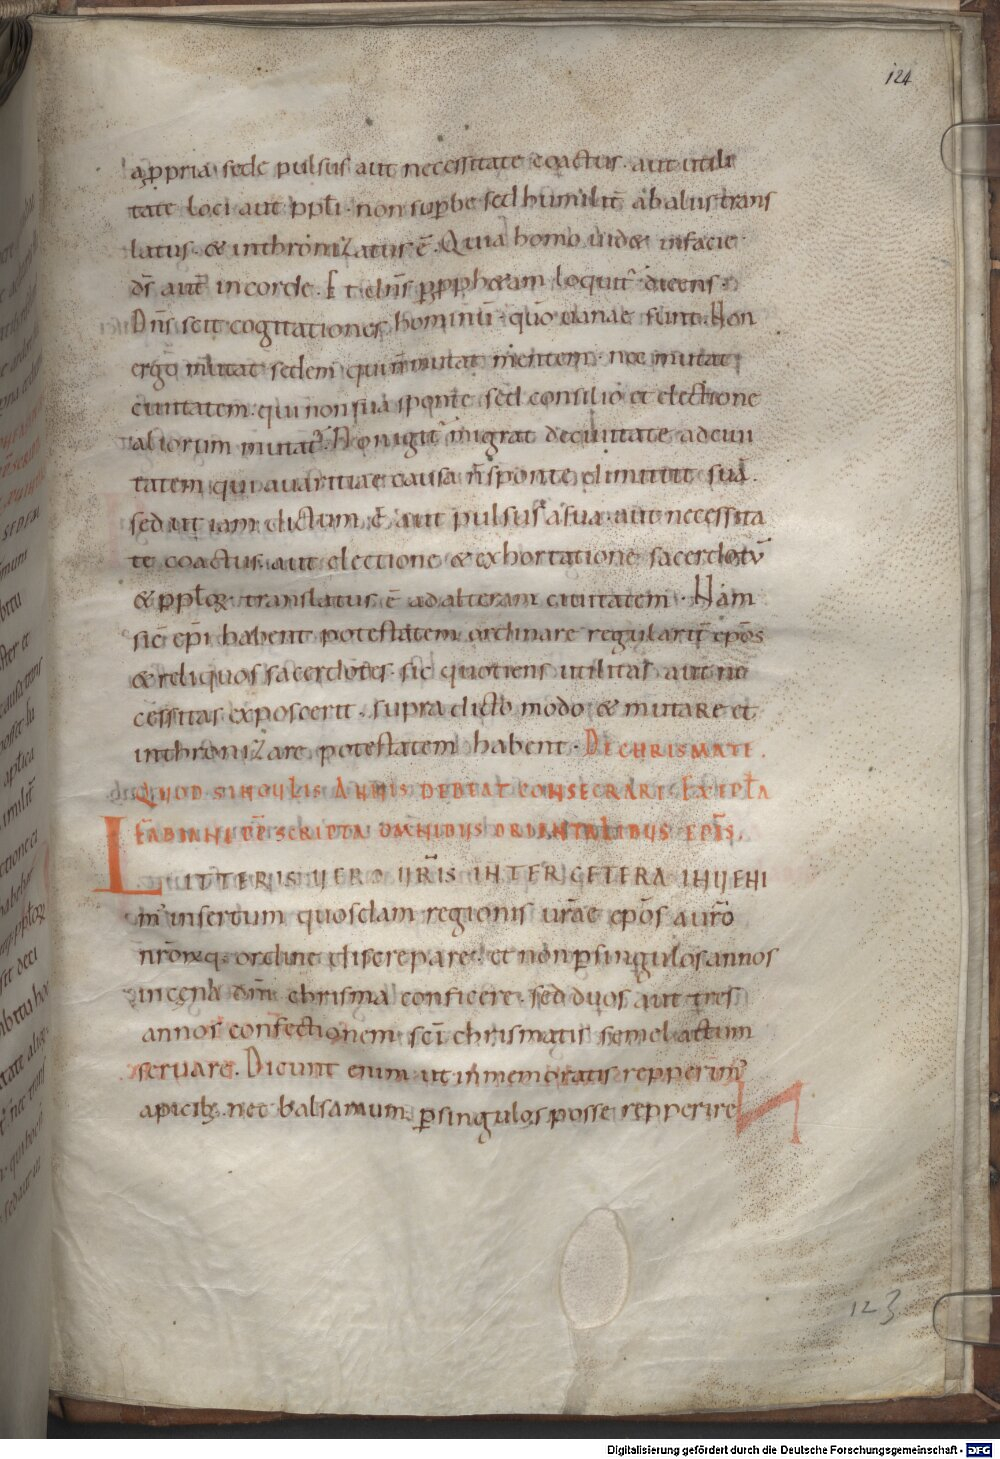 124
a ppria sede pulsus aut necessitate coactus. aut utili
tate loci aut ppłi. non supbe sed humilit̄ ab aliis trans
latus. & inthronizatus ē. Quia homo uid& in facie
ds̄ aut̄ in corde. Et dn̄s p pph&am loquit̄ dicens.
Dn̄s scit cogitationes hominū. qūo uanae sunt. Non
ergo mutat sedem qui n̄ mutat mentem. nec mutat
ciuitatem. qui non sua sponte sed consilio et electione
aliorum mutat̄. Non igit̄ migrat de ciuitate ad ciui
tatem qui auaritiae causa n̄ sponte dimittit suā.
sed ut iam dictum ē. aut pulsus a sua. aut necessita
te coactus. aut electione & exhortatione sacerdotū
& ppłoꝝ translatus ē ad alteram ciuitatem. Nam
sic ep̄i habent potestatem ordinare regularit̄ ep̄os
& reliquos sacerdotes. sic quotiens utilitas aut ne
cessitas exposcerit. supra dicto modo & mutare et
inthronizare potestatem habent. DE CHRISMATE.
QUOD SINGULIS ANNIS DEBEAT CONSECRARI. EX EPŁA
FABIANI PP̄ SCRIPTA OMNIBUS ORIENTALIBUS EP̄IS.
LITTERIS UERO UR̄IS INTER CETERA INUENI
m̄ insertum quosdam regionis ur̄ae ep̄os a ur̄o
nr̄oꝝq. ordine discrepare. et non p singulos annos
in cęna dn̄i chrisma conficere. sed duos aut tres
annos confectionem sc̄i chrismatis semel actum
seruare. Dicunt enim ut in memoratis repperim᾽
apicib;. nec balsamum p singulos posse repperire
123
Digitalisierung gefördert durch die Deutsche Forschungsgemeinschaft - DFG